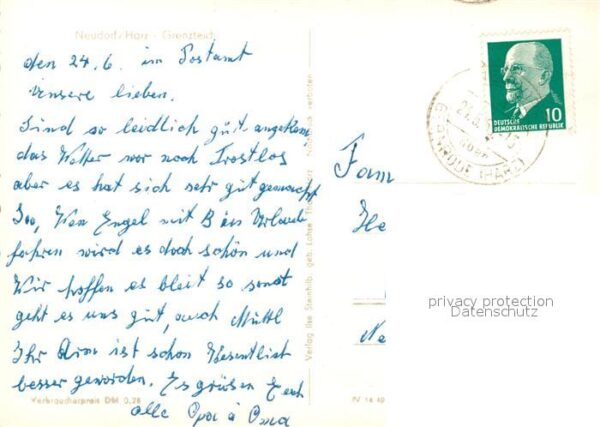 Neudorf/Harz - Grenzteich
den 24.6. im Postamt
Unsere lieben.
Sind so leidlich gut angekom,
das Wetter war noch Trostlos
aber es hat sich sehr gut gemacht
Ja, Wen Engel mit B in Urlaub
fahren wird es doch schön und
Wir hoffen es bleit so sonst
geht es uns gut, auch Mutti
Ihr Arm ist schon Wesentlich
besser geworden. Es grüsen Euch
alle Opa à Oma
Verbraucherpreis DM 0,28
Verlag Ilse Steinhilb. geb. Lohse
verboten
IV 14 40
Fam
He
Ne
10
DEUTSCHE
DEMOKRATISCHE REPUBLIK
(HARZ)
privacy protection
Datenschutz